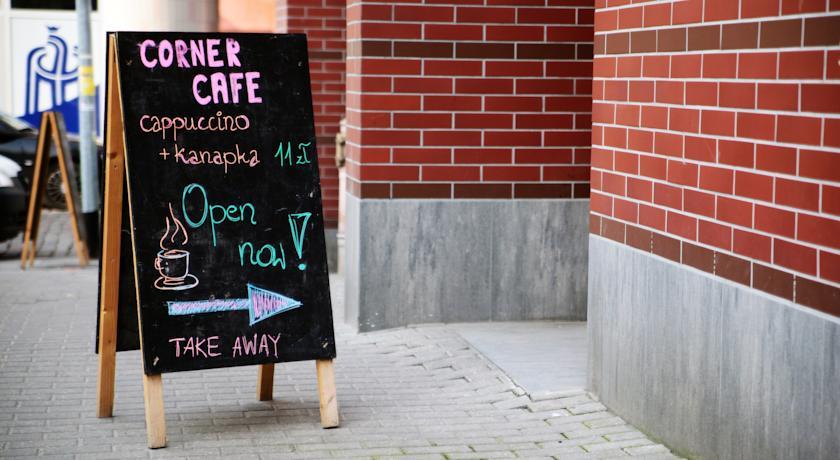 CORNER
CAFE
cappuccino
+kanapka 11 zł
Open
now!
TAKE AWAY